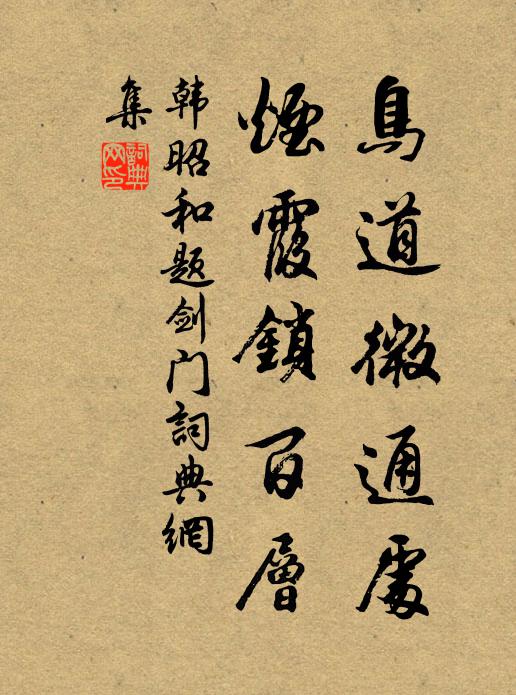 鳥道微通處
煙霞鎖百層
韩昭和题剑门詞典網
集
詞典網印